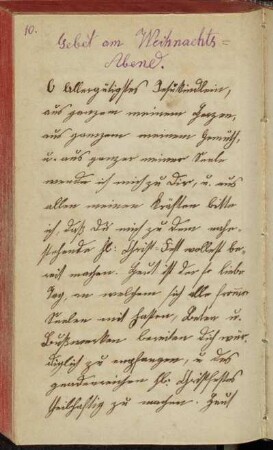 10.
Gebet am Weihnachts=
Abend.
O Allergütigstes Jesukindlein,
aus ganzem meinem Herzen,
aus ganzem meinem Gemüth,
u. aus ganzer meiner Seele
wende ich mich zu Dir, u. aus
allen meinen Kräften bitte
ich, daß Du mich zu dem nahe-
stehende hl: Christ-Fest wollest be-
reit machen. Heut ist der so liebe
Tag, an welchem sich alle fromme
Seelen mit Fasten, Beten u.
Bußwerken bereiten dich wür-
diglich zu empfangen, u. des
gnadenreichen hl: Christfestes
theilhaftig zu machen. Heut